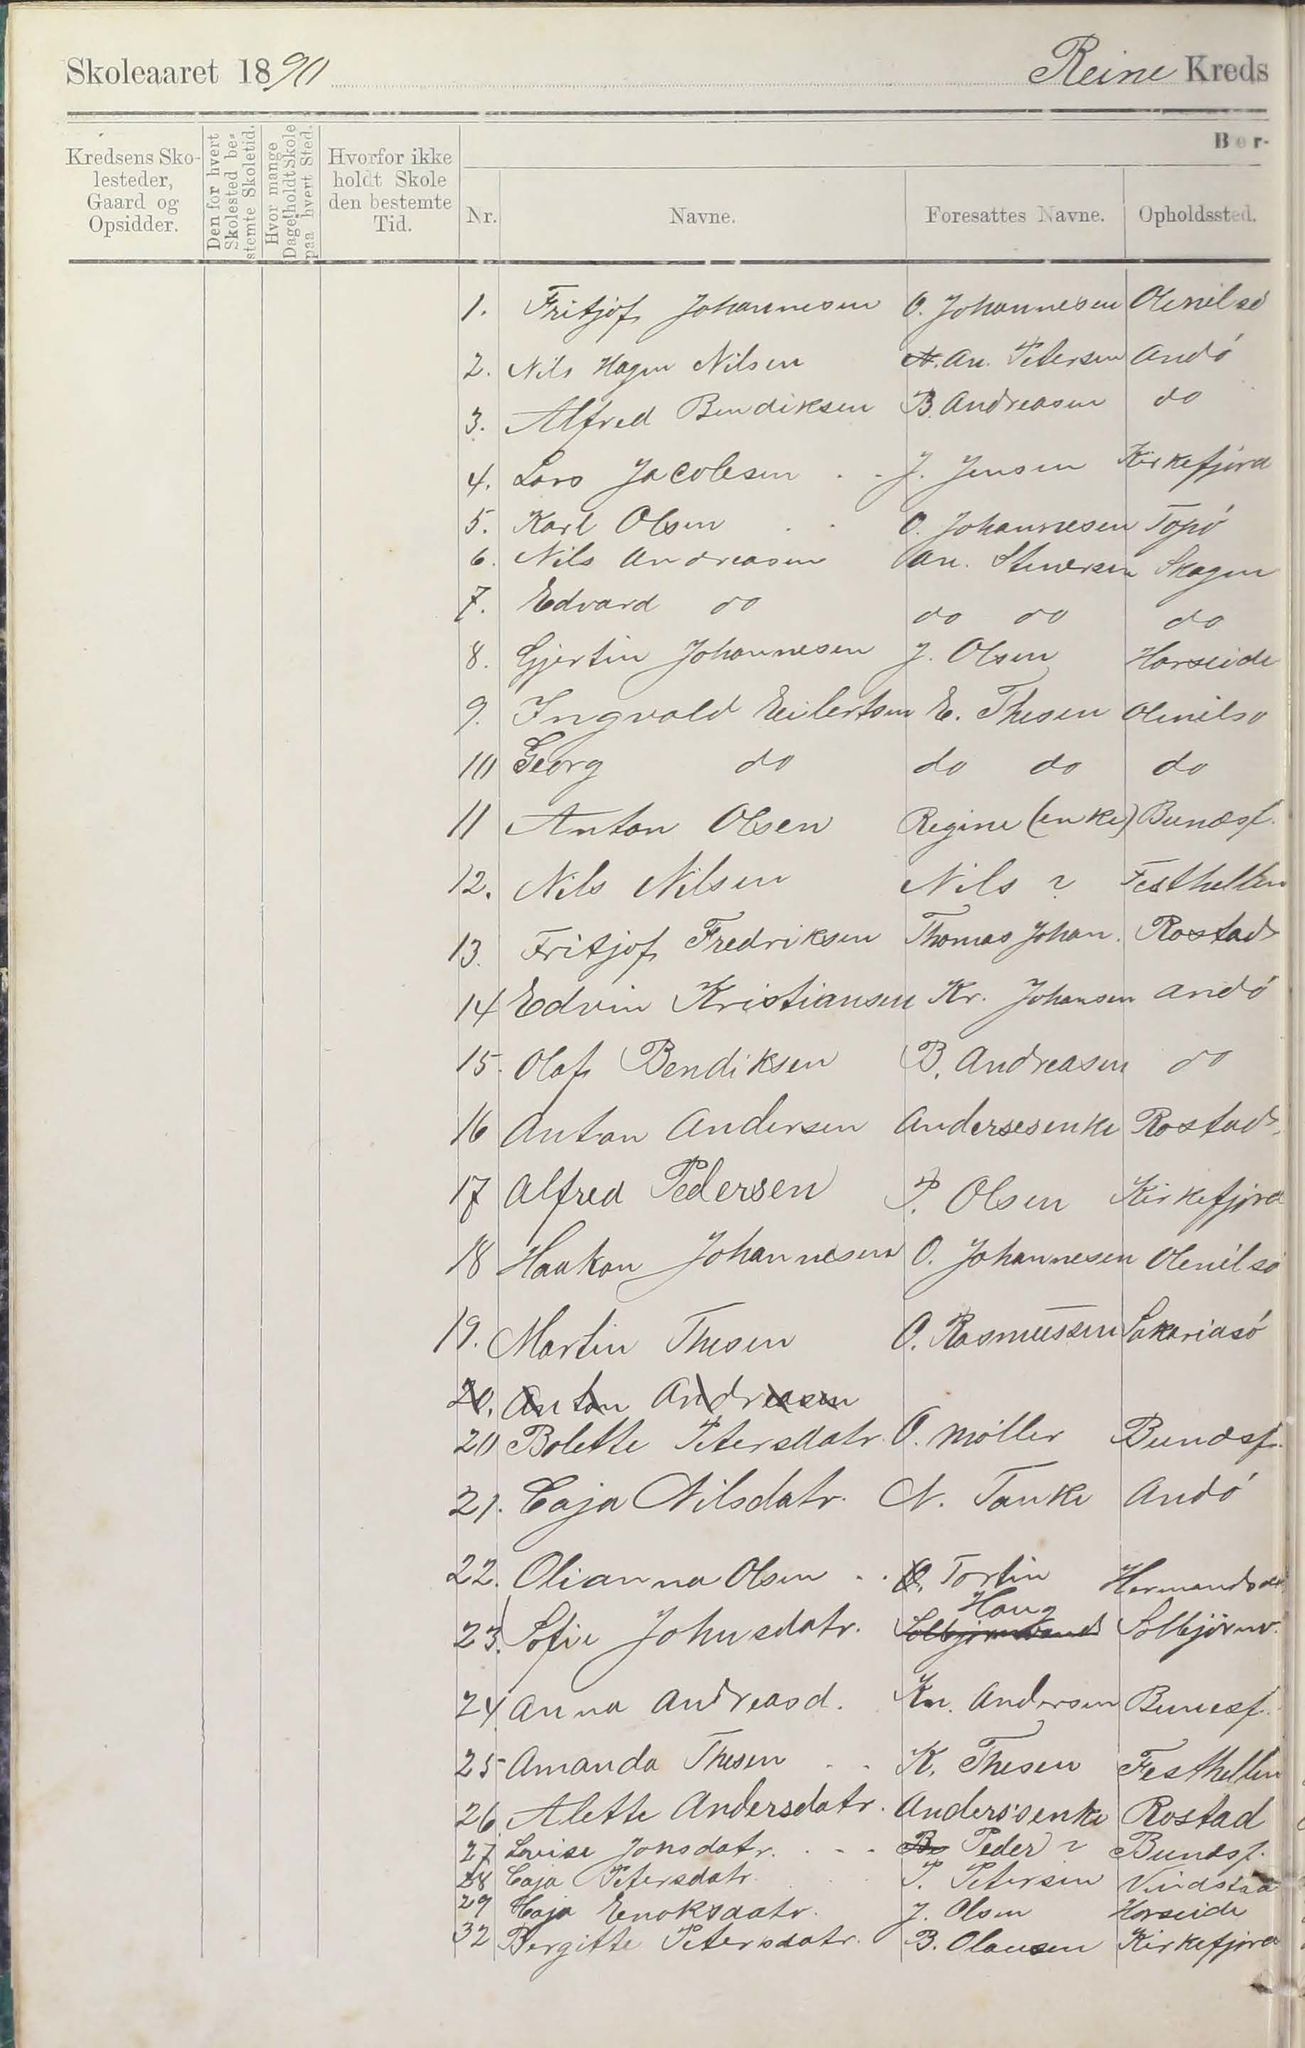 Skoleaaret 1890 Reine Kreds
Bør-
Kredsens Sko-
lesteder,
Gaard og
Opsidder.
Den for hvert
Skolested be-
stemte Skoletid.
Hvor mange
Dage holdt Skole
paa hvert Sted.
Hvorfor ikke
holdt Skole
den bestemte
Tid.
Nr. Navne. Foresattes Navne. Opholdssted.
1. Fritjof Johannesen O. Johannesen Olenilsö
2. Nils Hagen Nilsen An. Petersen Andö
3. Alfred Bendiksen B. Andreasen do
4. Lars Jacobsen J. Jensen Kirkefjord
5. Karl Olsen O. Johannesen Topö
6. Nils Andreasen An. Stenersen Skagen
7. Edvard do do do do
8. Gjertin Johannesen J. Olsen Horseide
9. Ingvald Eilertsen E. Thesen Olenilsö
10 Georg do do do do
11 Anton Olsen Regine (enke) Bunæsf.
12. Nils Nilsen Nils ? Festhellen
13. Fritjof Fredriksen Thomas Johan. Rostad
14 Edvin Kristiansen Kr. Johansen Andö
15. Olaf Bendiksen B. Andreasen do
16 Anton Andersen Andersesenke Rostad
17 Alfred Pedersen P. Olsen Kirkefjord
18 Haakon Johannesen O. Johannesen Olenilsö
19. Martin Thesen O. Rasmussen Sakariasö
20. Anton Andreasen
20 Bolette Petersdatr. O. Møller Bunæsf.
21. Caja Nilsdatr. N. Tanke Andö
22. Olianna Olsen O. Tortin
Haug
23. Sofie Johnsdatr. Solbjörnv.
24 Anna Andreasd. Kn. Andersen Bunesf.
25 Amanda Thesen K. Thesen Festhellen
26 Alette Andersdatr. Anders'senke Rostad
27 Lovise Jonsdatr. Peder ? Bunæsf.
28 Caja Petersdatr. P. Petersen Vindstad
29 Haja Enoksdatr. J. Olsen Horseide
32 Bergitte Petersdatr. B. Olausen Kirkefjord